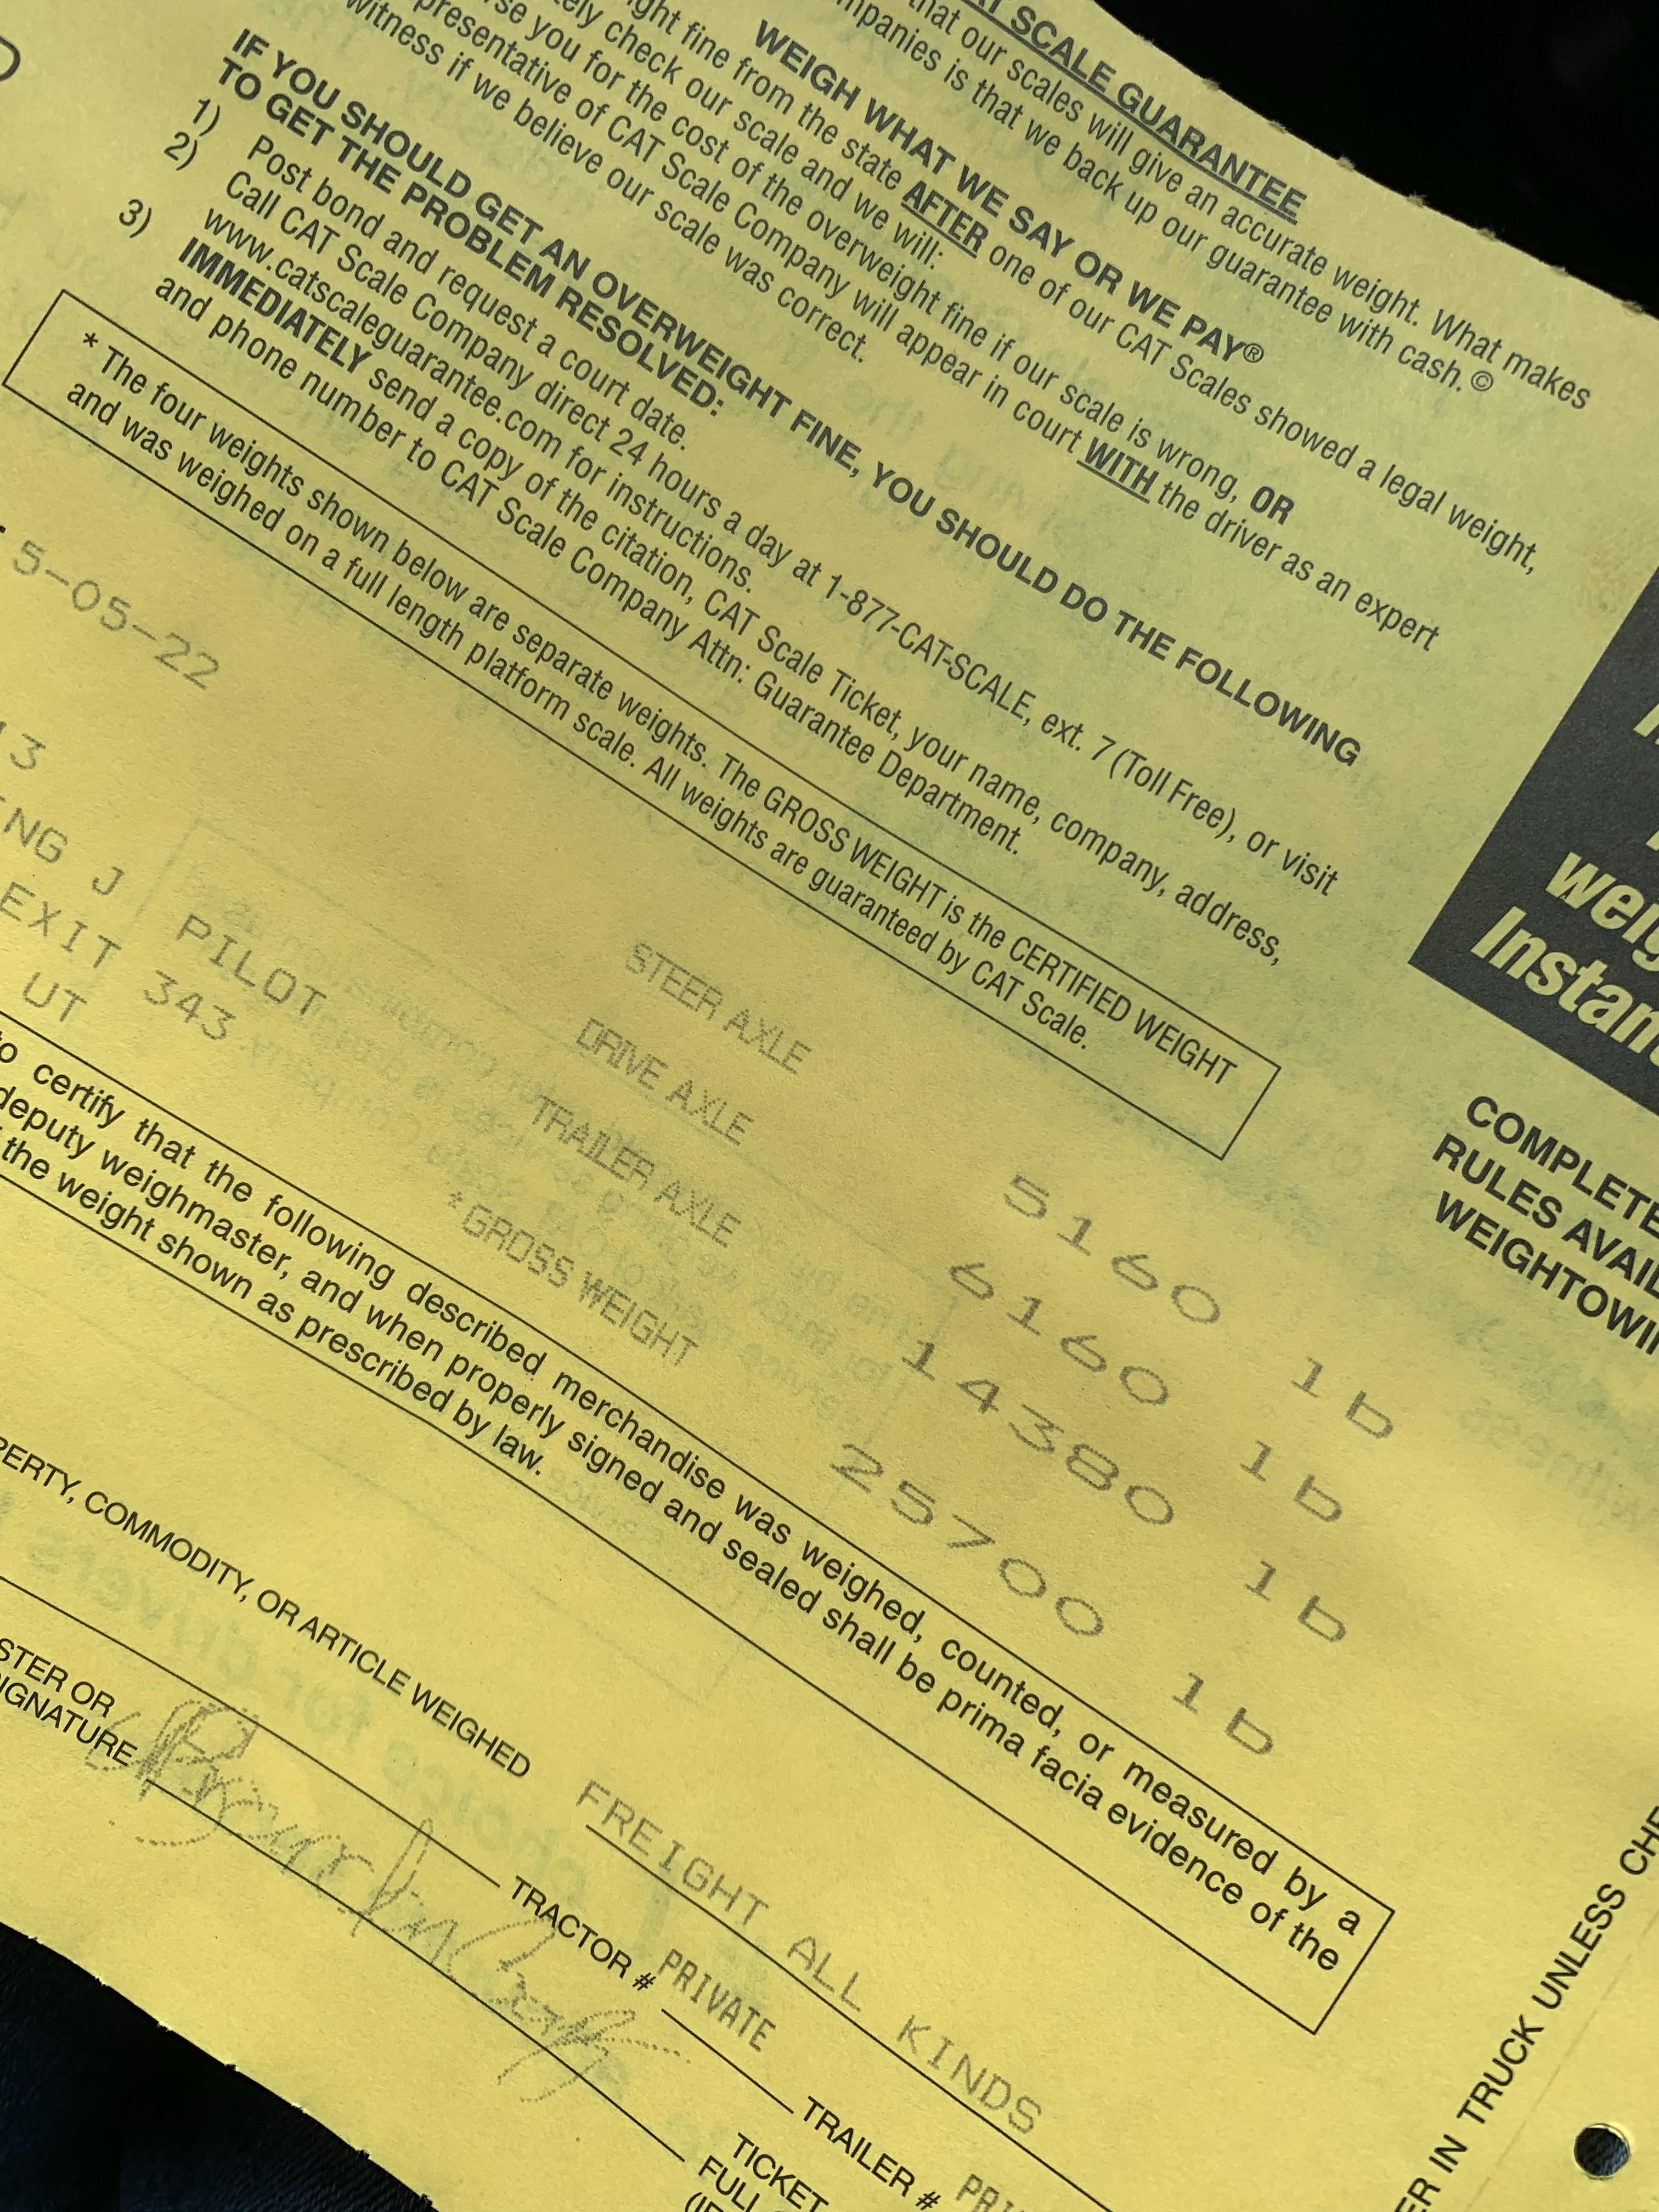 AT SCALE GUARANTEE
that our scales will give an accurate weight. What makes
mpanies is that we back up our guarantee with cash.©
WEIGH WHAT WE SAY OR WE PAY®
ght fine from the state AFTER one of our CAT Scales showed a legal weight,
ely check our scale and we will:
se you for the cost of the overweight fine if our scale is wrong, OR
presentative of CAT Scale Company will appear in court WITH the driver as an expert
witness if we believe our scale was correct.
IF YOU SHOULD GET AN OVERWEIGHT FINE, YOU SHOULD DO THE FOLLOWING
TO GET THE PROBLEM RESOLVED:
1) Post bond and request a court date.
2) Call CAT Scale Company direct 24 hours a day at 1-877-CAT-SCALE, ext. 7 (Toll Free), or visit
www.catscaleguarantee.com for instructions.
3) IMMEDIATELY send a copy of the citation, CAT Scale Ticket, your name, company, address,
and phone number to CAT Scale Company Attn: Guarantee Department.
* The four weights shown below are separate weights. The GROSS WEIGHT is the CERTIFIED WEIGHT
and was weighed on a full length platform scale. All weights are guaranteed by CAT Scale.
5-05-22
13
NG J PILOT
EXIT 343
UT
STEER AXLE 5160 lb
DRIVE AXLE 6160 lb
TRAILER AXLE 14380 lb
*GROSS WEIGHT 25700 lb
to certify that the following described merchandise was weighed, counted, or measured by a
deputy weighmaster, and when properly signed and sealed shall be prima facia evidence of the
the weight shown as prescribed by law.
PERTY, COMMODITY, OR ARTICLE WEIGHED FREIGHT ALL KINDS
STER OR
IGNATURE
TRACTOR # PRIVATE
TRAILER # PRI
TICKET
FULL
weig
Instan
COMPLETE
RULES AVAIL
WEIGHTOWI
ER IN TRUCK UNLESS CHE